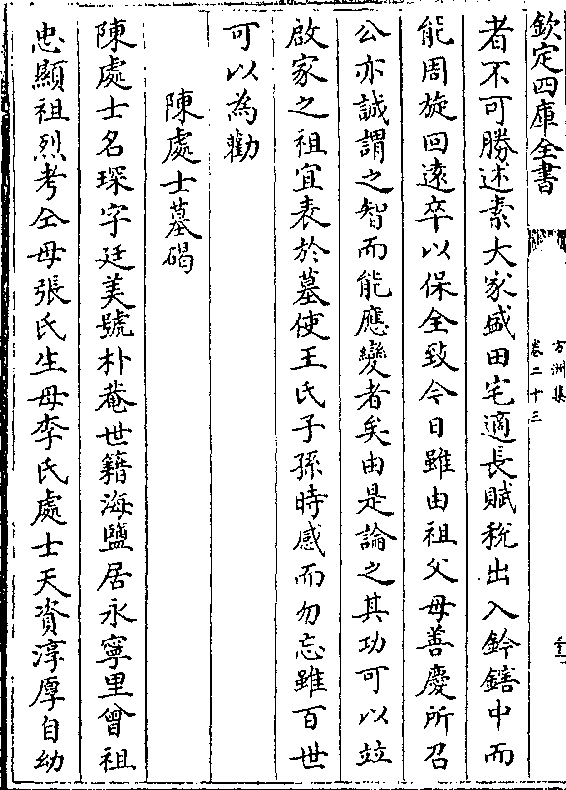 欽定四庫全書
方洲集
卷二十三
者不可勝述素大家盛田宅適長賦稅出入鈐鐥中而
能周旋回遠卒以保全致今日雖由祖父母善慶所召
公亦誠謂之智而能應變者矣由是論之其功可以竝
啟家之祖宜表於墓使王氏子孫時感而勿忘雖百世
可以為勸
陳處士墓碣
陳處士名琛字廷美號朴菴世籍海鹽居永寧里曾祖
忠顯祖烈考仝母張氏生母李氏處士天資淳厚自幼